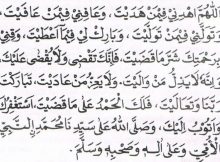 اَللّٰهُمَّ اهْدِنِيْ فِيْمَنْ هَدَيْتَ، وَعَافِنِيْ فِيْمَنْ عَافَيْتَ
وَتَوَلَّنِيْ فِيْمَنْ تَوَلَّيْتَ، وَبَارِكْ لِيْ فِيْمَا أَعْطَيْتَ، وَقِنِيْ
بِرَحْمَتِكَ شَرَّ مَا قَضَيْتَ، فَإِنَّكَ تَقْضِيْ وَلَا يُقْضَى عَلَيْكَ،
إِنَّهُ لَا يَذِلُّ مَنْ وَالَيْتَ، وَلَا يَعِزُّ مَنْ عَادَيْتَ، تَبَارَكْتَ
رَبَّنَا وَتَعَالَيْتَ، فَلَكَ الْحَمْدُ عَلَى مَا قَضَيْتَ، أَسْتَغْفِرُكَ
وَأَتُوْبُ إِلَيْكَ، وَصَلَّى اللهُ عَلَى سَيِّدِنَا مُحَمَّدٍ النَّبِيِّ
الْأُمِّيِّ وَعَلَى آلِهِ وَصَحْبِهِ وَسَلَّمَ.